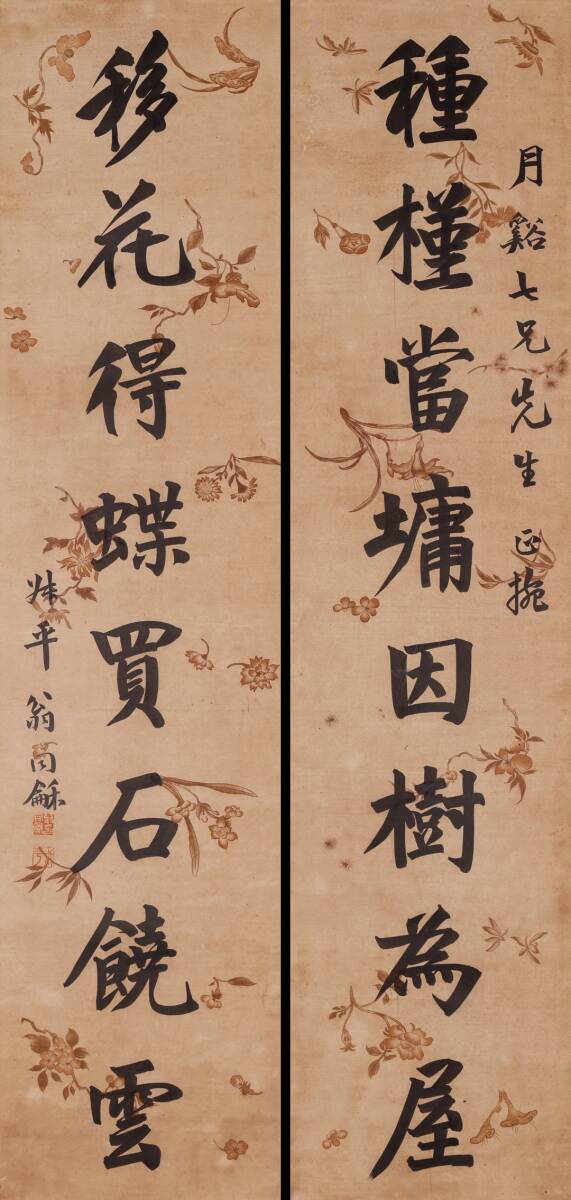 月谿七兄先生 正捥
種槿當墉因樹為屋
移花得蝶買石饒雲
叔平翁同龢